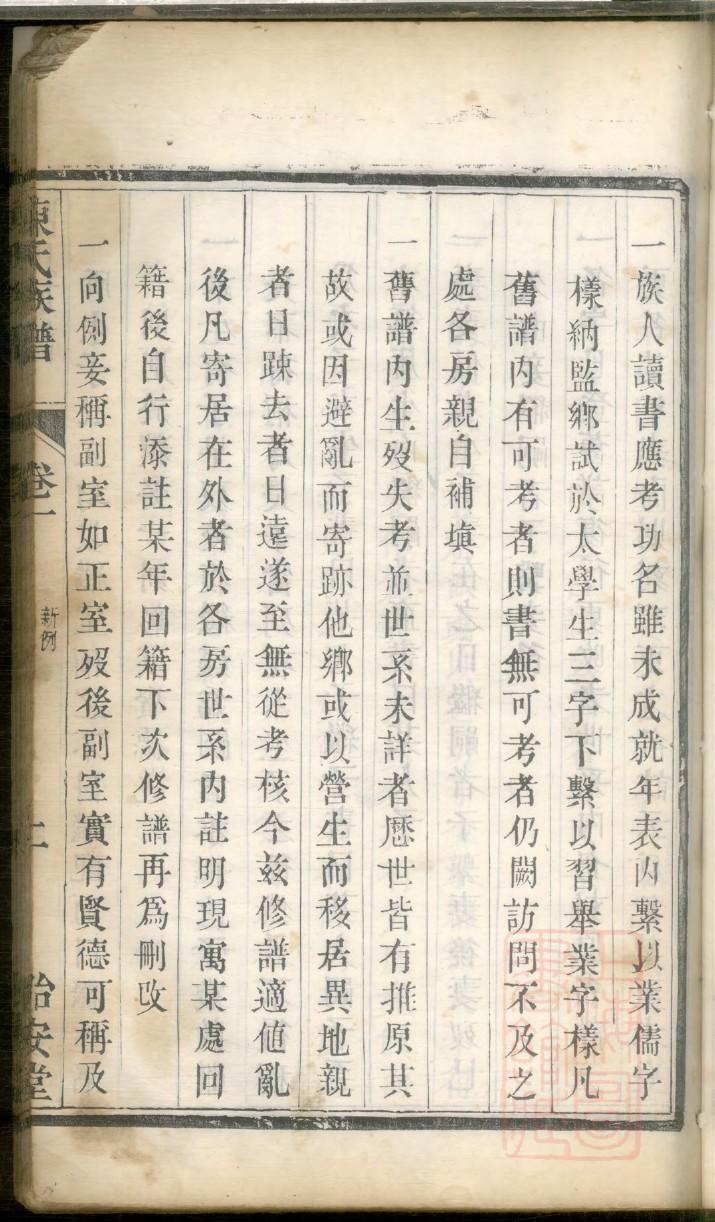 一族人讀書應考功名雖未成就年表内繫以業儒字
樣納監鄉試於太學生三字下繫以習舉業字樣凡
舊譜内有可考者則書無可考者仍闕訪問不及之
處各房親自補填
一舊譜内生歿失考並世系未詳者歷世皆有推原其
故或因避亂而寄跡他鄉或以營生而移居異地親
者日踈去者日遠遂至無從考核今兹修譜適值亂
後凡寄居在外者於各房世系内註明現寓某處回
籍後自行添註某年回籍下次修譜再為刪改
一向例妾稱副室如正室歿後副室實有賢德可稱及
陳氏族譜
卷一
新例
二
治安堂